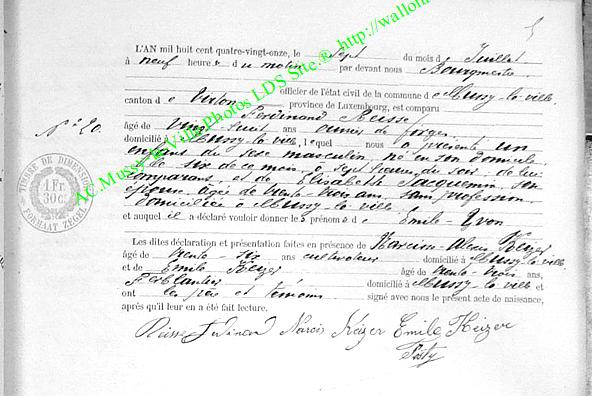 5
L'AN mil huit cent quatre-vingt-onze, le sept du mois de Juillet
à neuf heures du matin par devant nous Bourgmestre
officier de l'état civil de la commune de Mussy-la-ville
canton de Virton, province de Luxembourg, est comparu
Ferdinand Reisse
âgé de vingt huit ans ouvrier de forges
domicilié à Mussy-la-ville, lequel nous a présenté un
enfant du sexe masculin né en son domicile
le six de ce mois à sept heures du soir de lui
comparant et de Elisabeth Jacquemin son
épouse âgée de trente trois ans sans profession
domiciliée à Mussy-la-ville
et auquel il a déclaré vouloir donner les prénoms de Emile-Yvon
Les dites déclaration et présentation faites en présence de Narcisse-Alexis Keizer
âgé de trente-six ans cultivateur domicilié à Mussy-la-ville
et de Emile Keizer âgé de trente-trois ans,
Ferblantier domicilié à Mussy-la-ville et
ont les père et témoins signé avec nous le présent acte de naissance,
après qu'il leur en a été fait lecture,
Reisse Ferdinand Narcis Keizer Emile Keizer
N° 20.
TIMBRE DE DIMENSION
1 Fr.
30 c.
FORMAAT ZEGEL
AC Mussy-la-Ville Photos LDS Site ® http://wallon